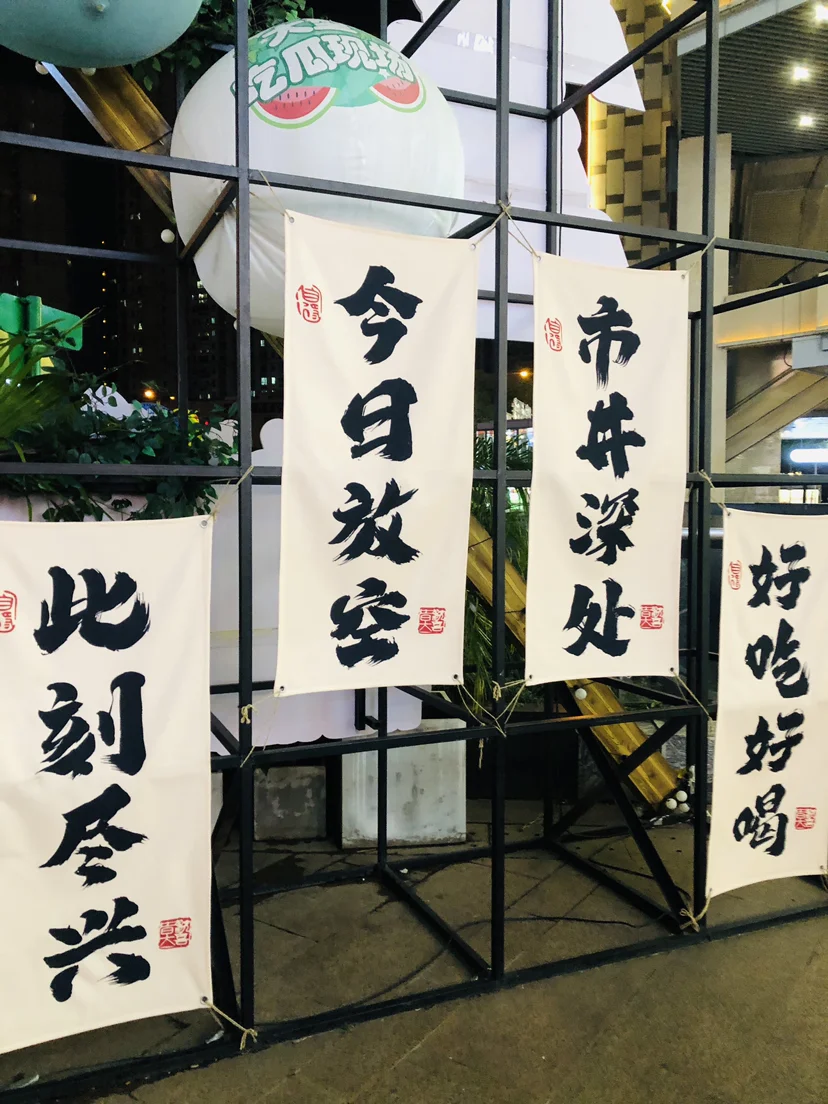 吃瓜现场
此刻尽兴
今日放空
市井深处
好吃好喝